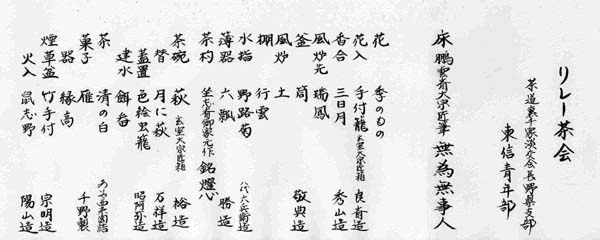 リレー茶会
茶道裏千家淡交会長野県支部
東信青年部
床 鵬雲斎大宗匠筆 無為無事人
花 季のもの
花入 手付籠 玄室大宗匠箱 良斎造
香合 三日月 秀山造
風炉先 瑞鳳
釜 筒 敬典造
風炉 土
棚 行雲
水指 野路菊 八代大兵衛造
薄器 六瓢 勝造
茶杓 坐忘斎御家元作 銘 燈心
茶碗 萩 玄室大宗匠箱 裕造
替 月に萩 万祥造
蓋置 色桧虫籠 昭阿弥造
建水 餌畚
茶 清の白
菓子 雁 千野製
器 縁高
煙草盆 竹手付 宗明造
火入 鼠志野 陽山造